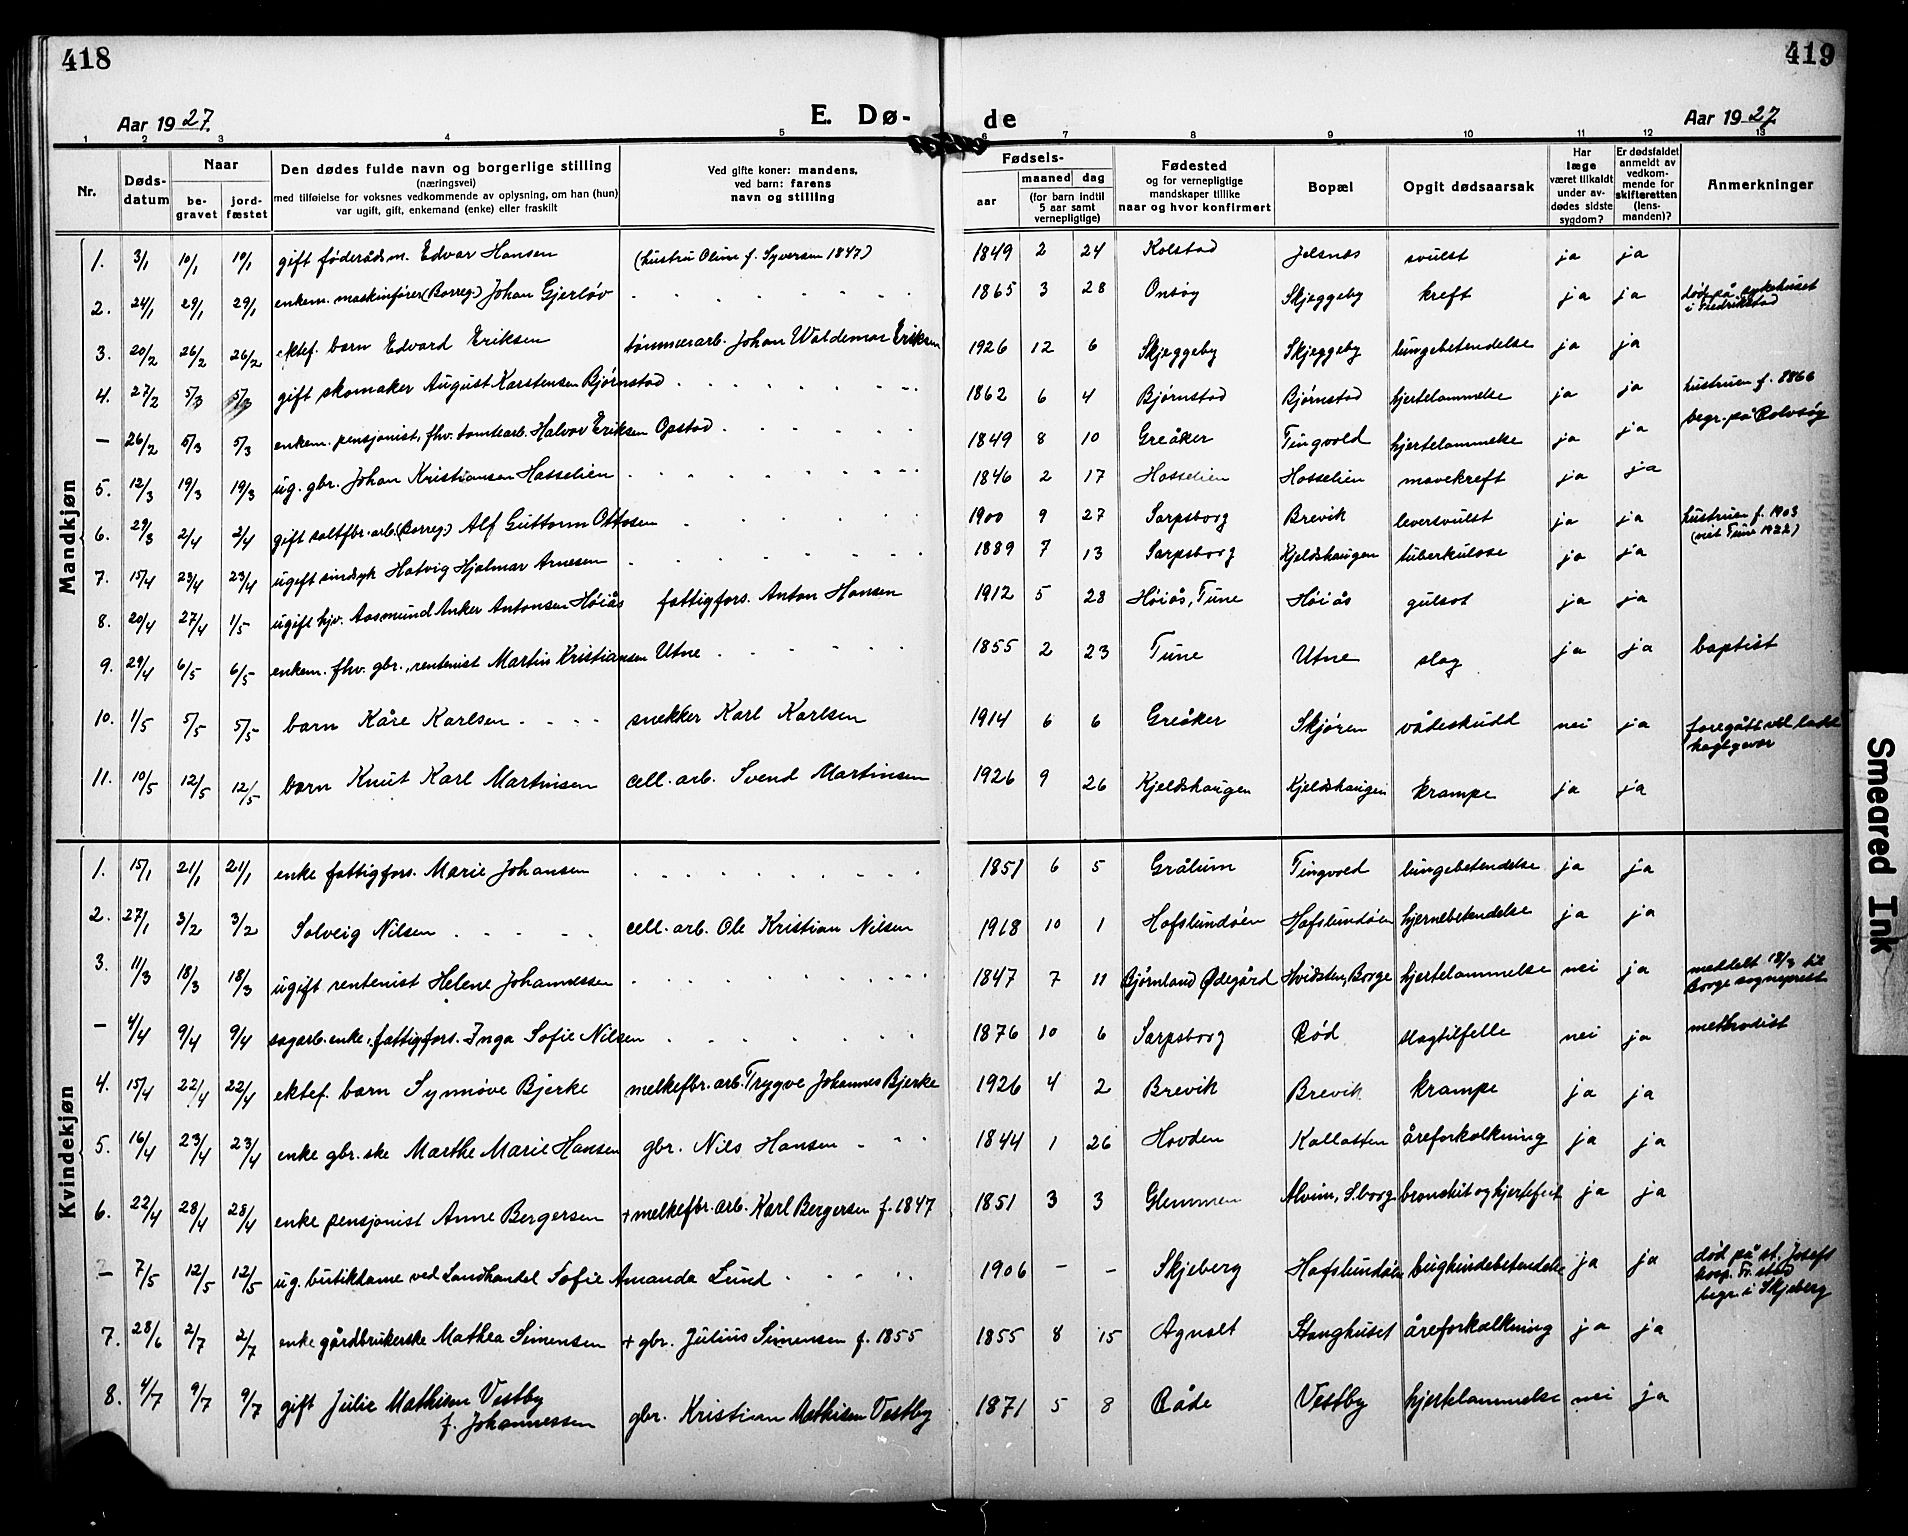 418
419
Aar 1927.
E. Dø-
de
Aar 1927
1 2 3 4 5 6 7 8 9 10 11 12 13
Nr.
Døds-
datum
Naar
be-
gravet
jord-
fæstet
Den dødes fulde navn og borgerlige stilling
(næringsvei)
med tilføielse for voksnes vedkommende av oplysning, om han (hun)
var ugift, gift, enkemand (enke) eller fraskilt
Ved gifte koner: mandens,
ved barn: farens
navn og stilling
Fødsels-
aar
maaned dag
(for barn indtil
5 aar samt
vernepligtige)
Fødested
og for vernepligtige
mandskaper tillike
naar og hvor konfirmert
Bopæl
Opgit dødsaarsak
Har
læge
været tilkaldt
under av-
dødes sidste
sygdom?
Er dødsfaldet
anmeldt av
vedkom-
mende for
skifteretten
(lens-
manden)?
Anmerkninger
Mandkjøn
1. 3/1 10/1 10/1 gift føderådsm. Edvar Hansen (hustru Oline f. Syversen 1847) 1849 2 24 Kolstad Jelsnes svulst ja ja
2. 24/1 29/1 29/1 enkem. maskinfører (Borreg.) Johan Gjerløv 1865 3 28 Onsøy Skjeggeby kreft ja ja død på sykehuset
i Fredrikstad
3. 20/2 26/2 26/2 ektef. barn Edvard Eriksen tømmerarb. Johan Waldemar Eriksen 1926 12 6 Skjeggeby Skjeggeby lungebetendelse ja ja
4. 27/2 5/3 5/3 gift skomaker August Karstensen Bjørnstad 1862 6 4 Bjørnstad Bjørnstad hjertelammelse ja ja hustruen f. 1866
– 26/2 5/3 5/3 enkem. pensjonist, fhv. tomtearb. Halvor Eriksen Opstad 1849 8 10 Greåker Tingvold hjertelammelse ja ja begr. på Rolvsøy
5. 12/3 19/3 19/3 ug. gbr. Johan Kristiansen Hasselien 1846 2 17 Hasselien Hasselien mavekreft ja ja
6. 29/3 2/4 2/4 gift saltfbr. arb. (Borreg.) Alf Guttorm Ottosen 1900 9 27 Sarpsborg Brevik leversvulst ja ja hustruen f. 1903
(viet Tune 1922)
7. 15/4 23/4 23/4 ugift sindsyk Hatvig Hjalmar Arnesen 1889 7 13 Sarpsborg Kjeldshaugen tuberkulose ja ja
8. 20/4 27/4 1/5 ugift hjv. Aasmund Anker Antonsen Høiås fattigfors. Anton Hansen 1912 5 28 Høiås, Tune Høiås gulsot ja ja
9. 29/4 6/5 6/5 enkem. fhv. gbr., rentenist Martin Kristiansen Utne 1855 2 23 Tune Utne slag ja ja baptist
10. 1/5 5/5 5/5 barn Kåre Karlsen snekker Karl Karlsen 1914 6 6 Greåker Skjøren vådeskudd nei ja foregått ved ladd
haglgevær
11. 10/5 12/5 12/5 barn Knut Karl Martinsen cell. arb. Svend Martinsen 1926 9 26 Kjeldshaugen Kjeldshaugen krampe ja ja
Kvindekjøn
1. 15/1 21/1 21/1 enke fattigfors. Marie Johansen 1851 6 5 Grålum Tingvold lungebetendelse ja ja
2. 27/1 3/2 3/2 Solveig Nilsen cell. arb. Ole Kristian Nilsen 1918 10 1 Hafslundøen Hafslundøen hjernebetendelse ja ja
3. 11/3 18/3 18/3 ugift rentenist Helene Johannessen 1847 7 11 Bjørnland Ødegård Hvidsten, Borge hjertelammelse nei ja meddelt 18/3 til
Borge sogneprest
– 4/4 9/4 9/4 sagarb. enke, fattigfors. Inga Sofie Nilsen 1876 10 6 Sarpsborg Rød slagtilfelle nei ja methodist
4. 15/4 22/4 22/4 ektef. barn Synnøve Bjerke melkefbr. arb. Trygve Johannes Bjerke 1926 4 2 Brevik Brevik krampe ja ja
5. 16/4 23/4 23/4 enke gbr.ske Marthe Marie Hansen gbr. Nils Hansen 1844 1 26 Hovden Kallasten åreforkalkning ja ja
6. 22/4 28/4 28/4 enke pensjonist Anne Bergersen + melkefbr. arb. Karl Bergersen f. 1847 1851 3 3 Glemmen Alvim, S.borg bronskit og hjertefeil ja ja
– 7/5 12/5 12/5 ug. butikdame ved Landhandel Sofie Amanda Lund 1906 – – Skjeberg Hafslundøen bughindebetendelse ja ja død på st. Josefs
hosp. Fr.stad
begr. i Skjeberg
7. 28/6 2/7 2/7 enke gårdbrukerske Mathea Simensen + gbr. Julius Simensen f. 1855 1855 8 15 Agnalt Stanghuset åreforkalkning ja ja
8. 4/7 9/7 9/7 gift Julie Mathisen Vestby gbr. Kristian Mathisen Vestby 1871 5 8 Råde Vestby hjertelammelse nei ja
f. Johannessen
Smeared Ink